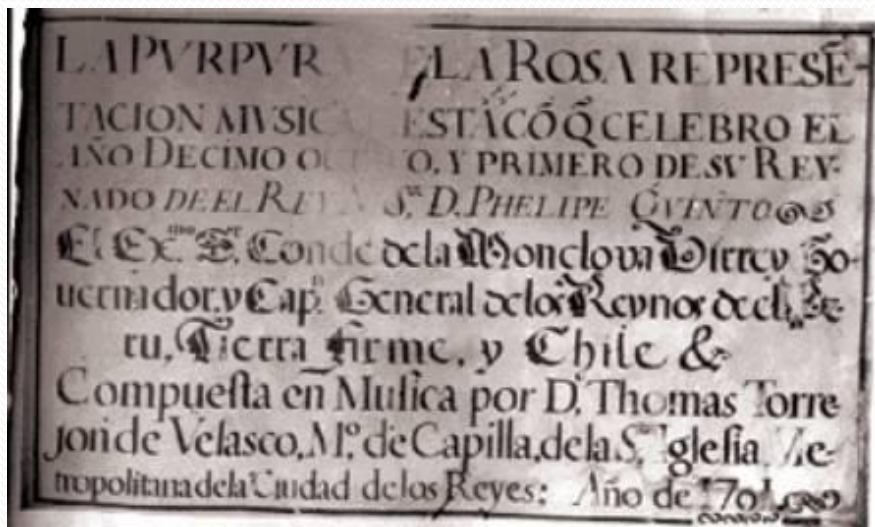 LA PVRPVR ELA ROSA REPRESĒ-
TACION MVSIC ESTA CÕ Q̃ CELEBRO EL
AÑO DECIMO OC O, Y PRIMERO DE SV REY-
NADO DE EL REY N S.ʳ D. PHELIPE QVINTO
El Ex.ᵐᵒ S.ʳ Conde de la Monclova Virrey Go-
uernador, y Cap.ⁿ General de los Reynos de el Pe-
ru, Tierra Firme, y Chile &
Compueſta en Muſica por D. Thomas Torre
jon de Velasco, M.º de Capilla, de la S.ᵗᵃ Igleſia Me-
tropolitana de la Ciudad de los Reyes: Año de 1701